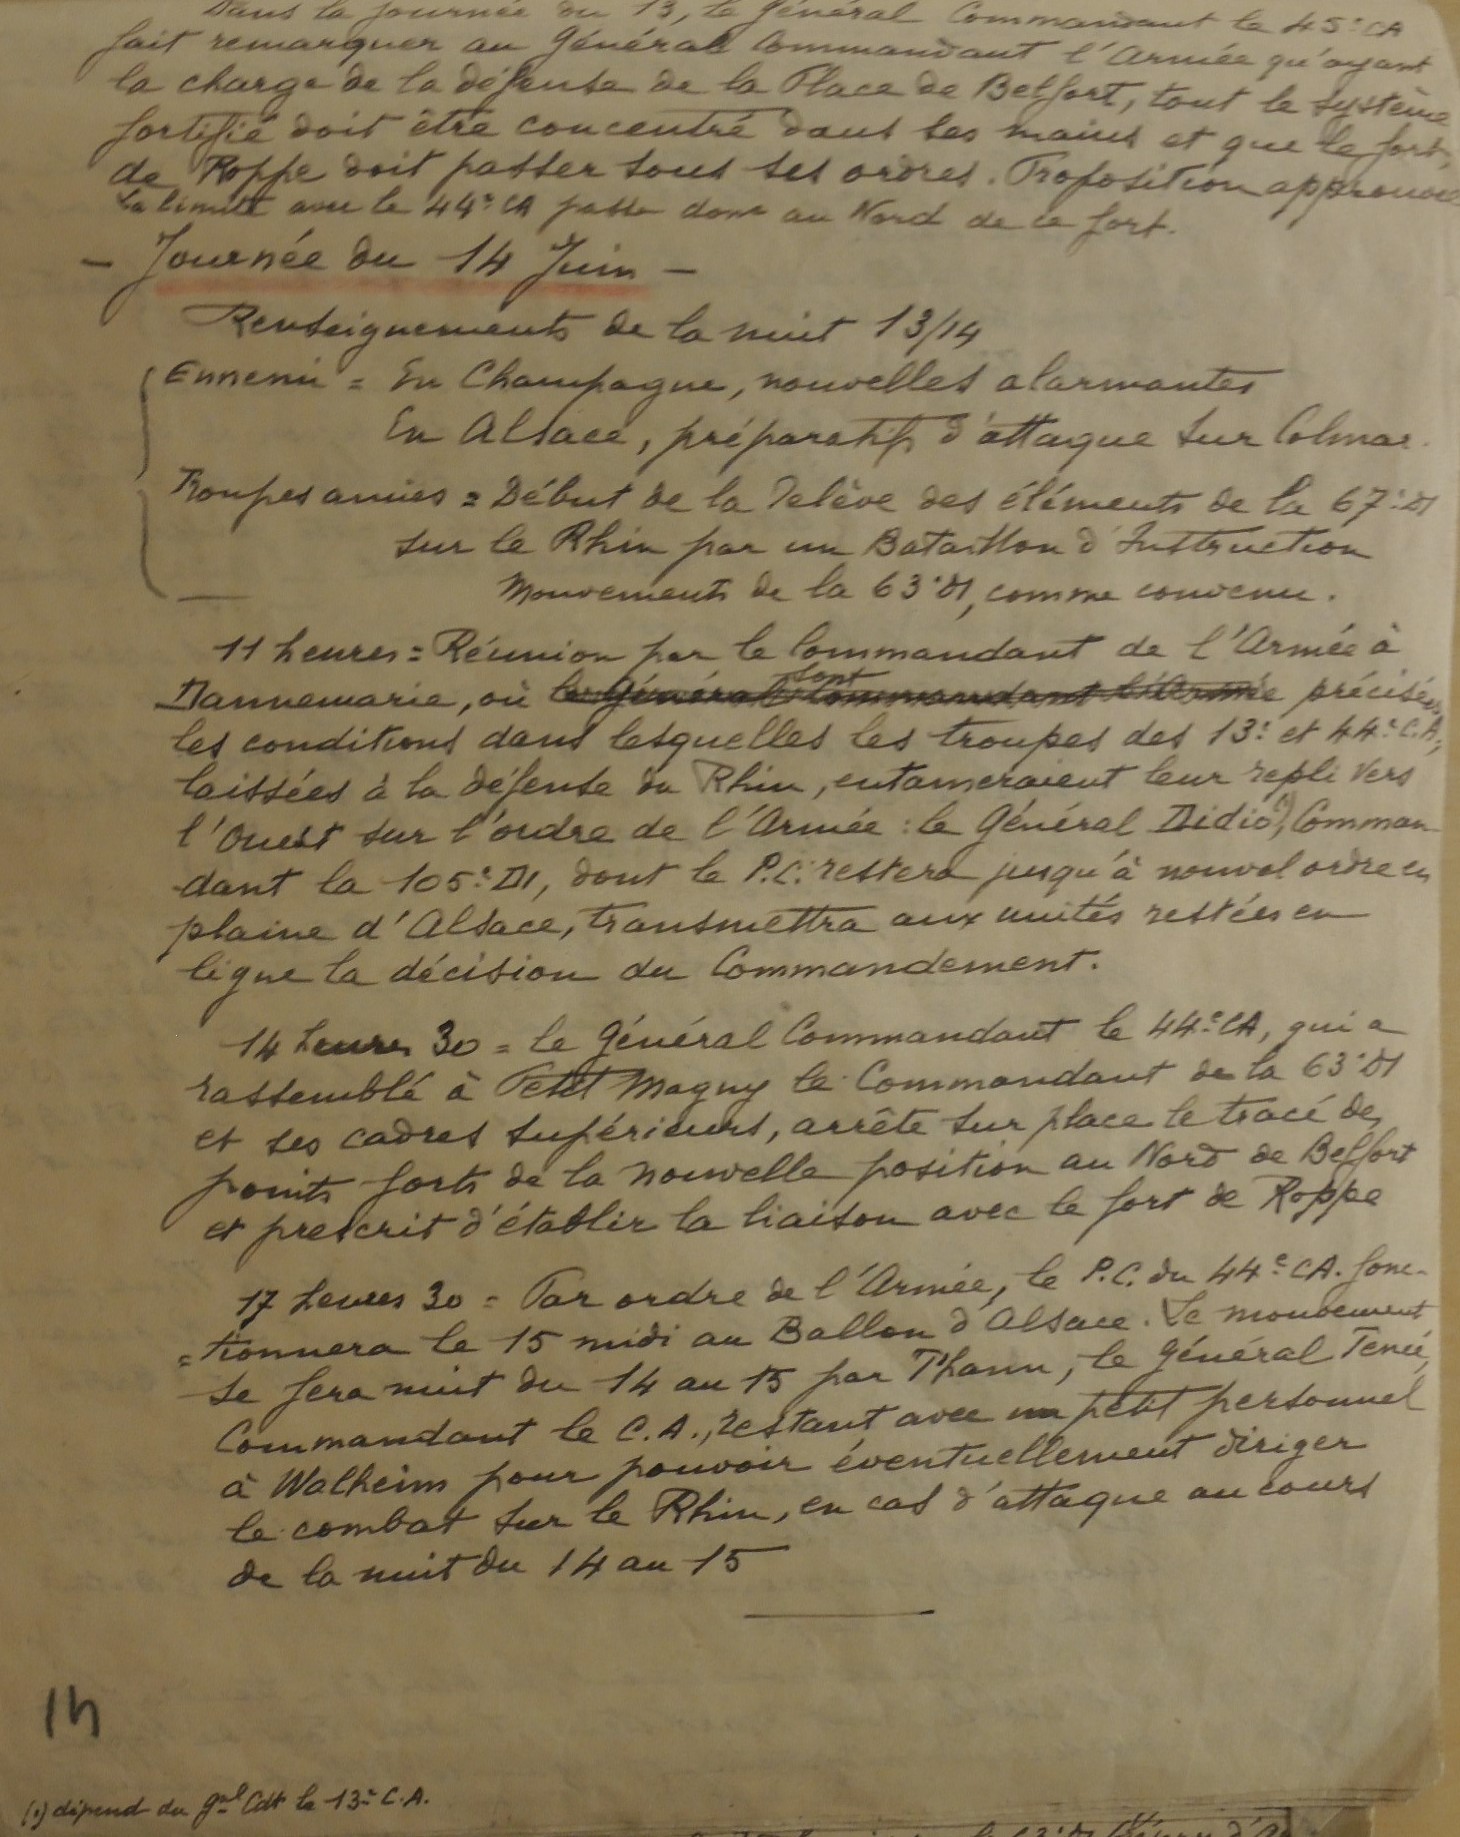 Dans la journée du 13, le Général Commandant le 45e CA
fait remarquer au Général Commandant l'Armée qu'ayant
la charge de la défense de la Place de Belfort, tout le système
fortifié doit être concentré dans ses mains et que le fort
de Roppe doit passer sous ses ordres. Proposition approuvée
La limite avec le 44e CA passe donc au Nord de ce fort.
- Journée du 14 Juin -
Renseignements de la nuit 13/14
Ennemi = En Champagne, nouvelles alarmantes
En Alsace, préparatifs d'attaque sur Colmar.
Troupes amies = Début de la relève des éléments de la 67e DI
sur le Rhin par un Bataillon d'Instruction
Mouvements de la 63e DI, comme convenu.
11 heures = Réunion par le Commandant de l'Armée à
Dannemarie, où le Général Commandant l'Armée sont précisées
les conditions dans lesquelles les troupes des 13e et 44e C.A.,
laissées à la défense du Rhin, entameraient leur repli vers
l'Ouest sur l'ordre de l'Armée : le Général Didio(1), Comman-
dant la 105e DI, dont le P.C. restera jusqu'à nouvel ordre en
plaine d'Alsace, transmettra aux unités restées en
ligne la décision du Commandement.
14 heures 30 = le Général Commandant le 44e CA, qui a
rassemblé à Petit Magny le Commandant de la 63e DI
et ses cadres supérieurs, arrête sur place le tracé des
points forts de la nouvelle position au Nord de Belfort
et prescrit d'établir la liaison avec le fort de Roppe
17 heures 30 = Par ordre de l'Armée, le P.C. du 44e CA. fonc-
=tionnera le 15 midi au Ballon d'Alsace. Le mouvement
se fera nuit du 14 au 15 par Thann, le Général Tencé,
Commandant le C.A., restant avec un petit personnel
à Walheim pour pouvoir éventuellement diriger
le combat sur le Rhin, en cas d'attaque au cours
de la nuit du 14 au 15
14
(1) dépend du Gal Cdt le 13e C.A.